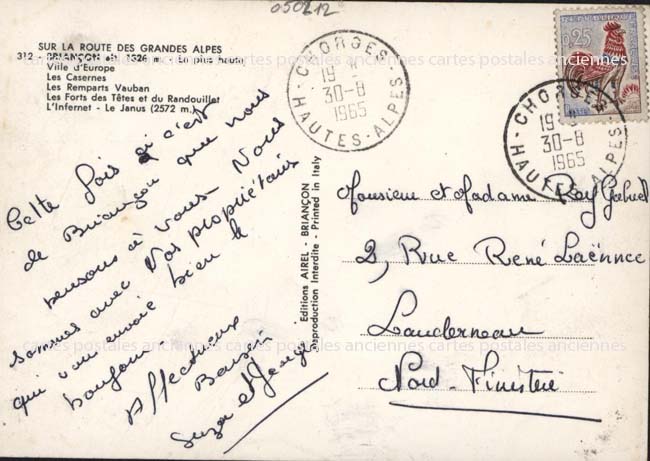 050212
SUR LA ROUTE DES GRANDES ALPES
312 - BRIANÇON alt. 1326 m. - La plus haute
Ville d'Europe
Les Casernes
Les Remparts Vauban
Les Forts des Têtes et du Randouillet
L'Infernet - Le Janus (2572 m.)
Cette fois ci c'est
de Briançon que nous
pensons à vous - Nous
sommes avec vos propriétaires
qui vous envoie bien le
bonjour.
Affectueux
Baisers
et
Editions AIREL - BRIANÇON
Reproduction Interdite - Printed in Italy
CHORGES
19 -
30-8
1965
HAUTES-ALPES
0,25
CHORGES
19 -
30-8
1965
HAUTES-ALPES
Monsieur et Madame Roy Gabriel
2, Rue René Laënnec
Landerneau
Nord-Finistère
cartes postales anciennes cartes postales anciennes cartes postales anciennes
cartes postales anciennes cartes postales anciennes cartes postales anciennes